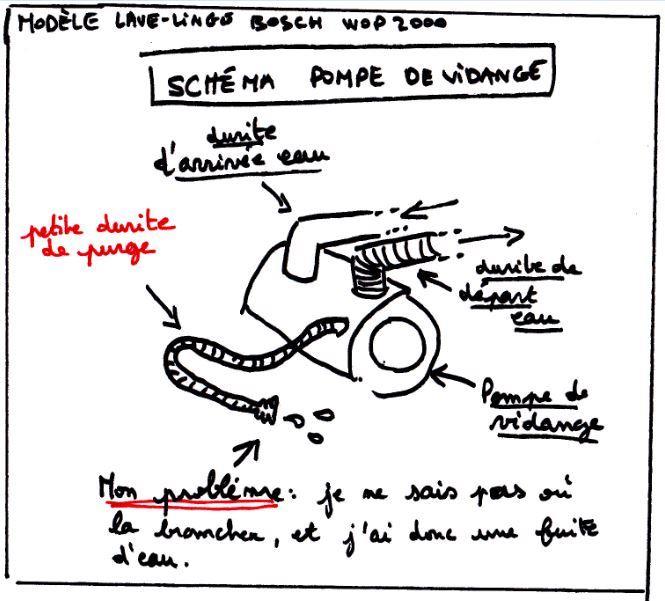 MODÈLE LAVE-LINGE BOSCH WOP 2000
SCHÉMA POMPE DE VIDANGE
durite
d'arrivée eau
petite durite
de purge
durite de
départ
eau
Pompe de
vidange
Mon problème: je ne sais pas où
la brancher, et j'ai donc une fuite
d'eau.